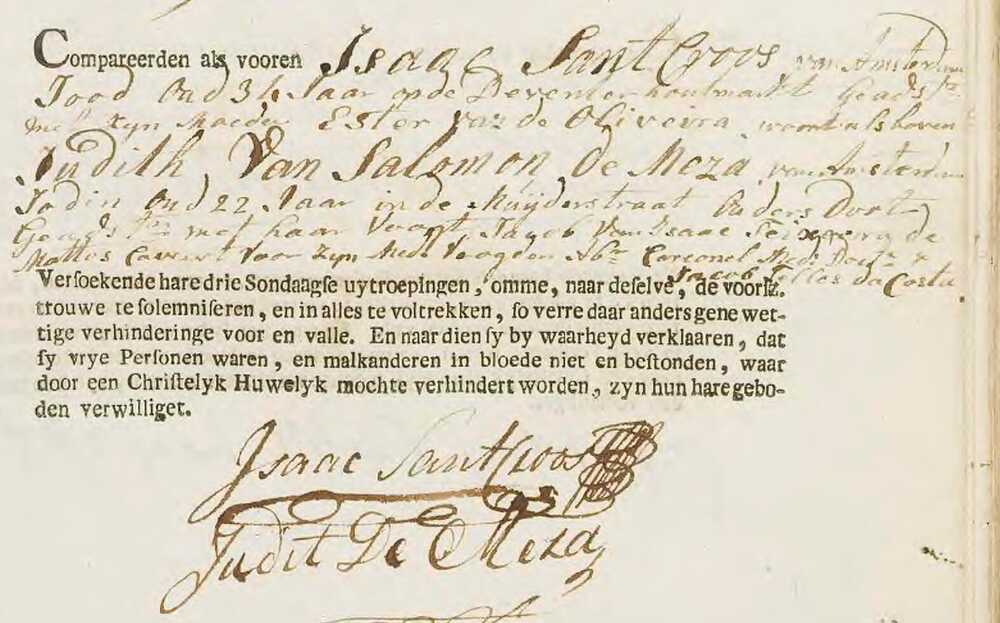 Compareerden als vooren Isaac Sant Croos van Amsterdam
Jood Oud 34 Jaar op de Deventer houtmarkt Geads.tr
met zyn Moeder Ester van de Oliveira woont als boven
Judith Van Salomon de Meza van Amsterdam
Jodin Oud 22 Jaar in de Muyderstraat Ouders Doot
Geads.tr met haar Voogt Jacob Van Isaac de
Mattos zyn Mede Voogden Ab.m Coronel
Jacob Telles da Costa
Versoekende hare drie Sondaagse uytroepingen, omme, naar deselve, de voorsz.
trouwe te solemniseren, en in alles te voltrekken, so verre daar anders gene wet-
tige verhinderinge voor en valle. En naar dien sy by waarheyd verklaaren, dat
sy vrye Personen waren, en malkanderen in bloede niet en bestonden, waar
door een Christelyk Huwelyk mochte verhindert worden, zyn hun hare gebo-
den verwilliget.
Isaac Sant Croos
Judit De Meza